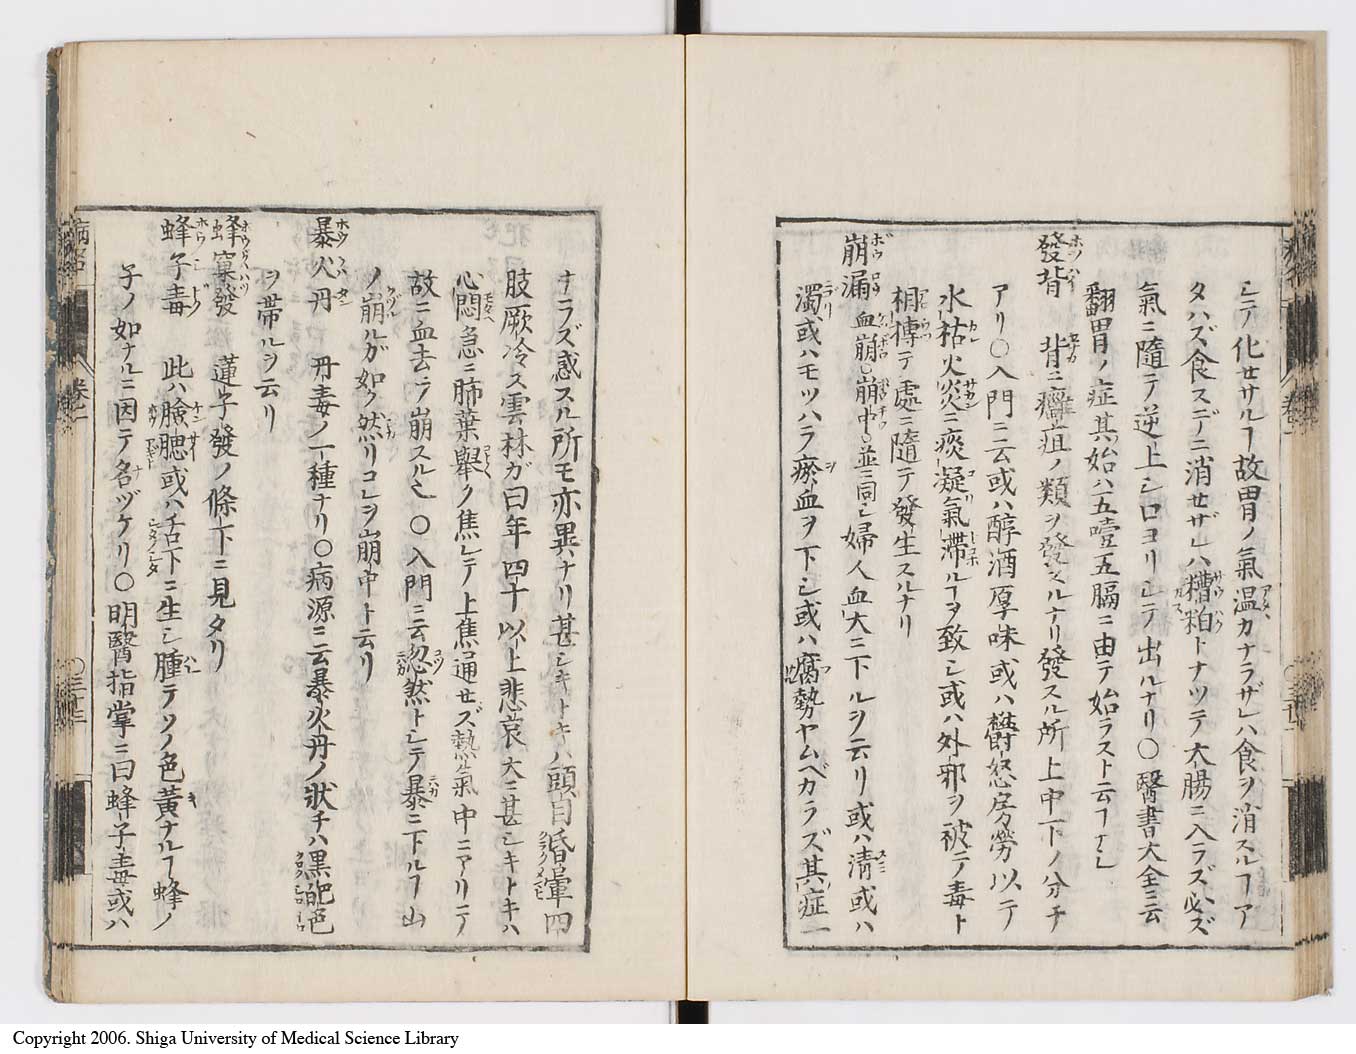 シテ化セサルヿ故胃ノ氣温カナラザレハ食ヲ消スルヿア
タハズ食スデニ消セザレハ糟粕トナツテ大腸ニ入ラズ必ズ
氣ニ隨テ逆上シ口ヨリシテ出ルナリ〇醫書大全ニ云
翻胃ノ症其始ハ五噎五膈ニ由テ始ラスト云フヿナシ
發背 背ニ癰疽ノ類ヲ發スルナリ發スル所上中下ノ分チ
アリ〇入門ニ云或ハ醇酒厚味或ハ欝怒房勞以テ
水枯火炎ニ痰凝氣滯ルヿヲ致シ或ハ外邪ヲ被テ毒ト
相摶テ處ニ隨テ發生スルナリ
崩漏 血崩〇崩中〇並ニ同シ婦人血大ニ下ルヲ云リ或ハ清或ハ
濁或ハモツハラ瘀血ヲ下シ或ハ腐勢ヤムベカラズ其症一
ナラズ惑スル所モ亦異ナリ甚シキトキハ頭目昏暈四
肢厥冷ス雲林ガ曰年四十以上悲哀大ニ甚シキトキハ
心悶急ニ肺葉舉ク焦シテ上焦通セズ熱氣中ニアリテ
故ニ血去ラ崩スル也〇入門ニ云忽然トシテ暴ニ下ルヿ山
ノ崩ルガ如ク然リコレヲ崩中ト云リ
暴火丹 丹毒ノ一種ナリ〇病源ニ云暴火丹ノ狀チハ黒皅色
ヲ帶ルヲ云リ
蜂窠發 蓮子發ノ條下ニ見タリ
蜂子毒 此ハ臉腮或ハ舌下ニ生シ腫テソノ色黄ナルヿ蜂ノ
子ノ如ナルニ因テ名ヅケリ〇明醫指掌ニ曰蜂子毒或ハ
Copyright 2006. Shiga University of Medical Science Library